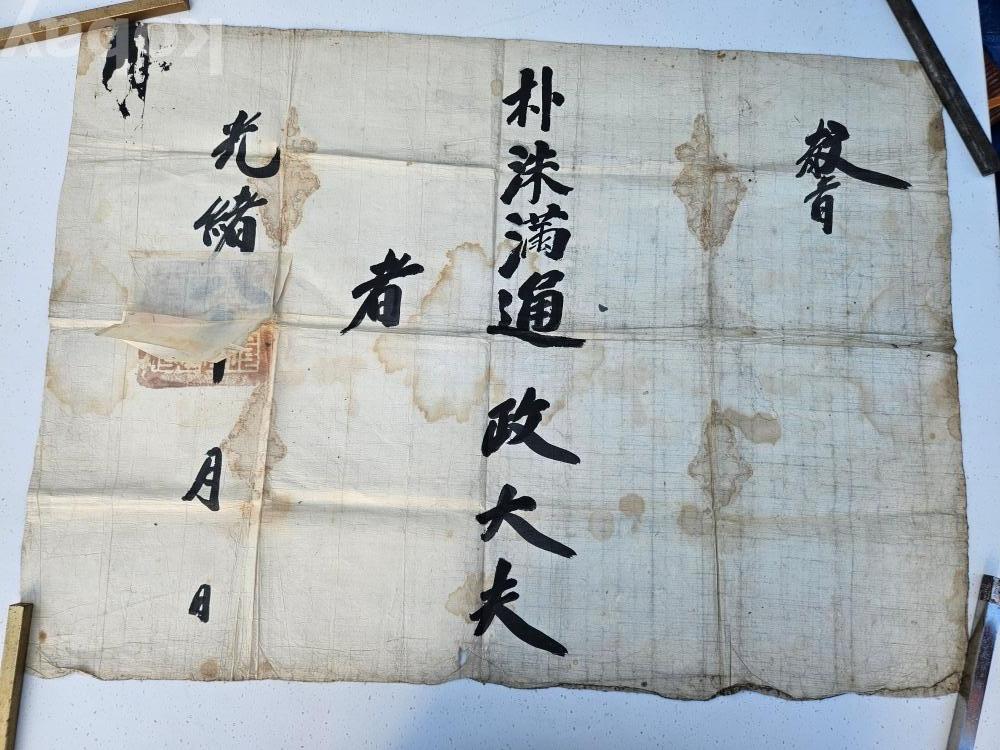 敎旨
朴洙滿通政大夫
者
光緒
月 日
kobay